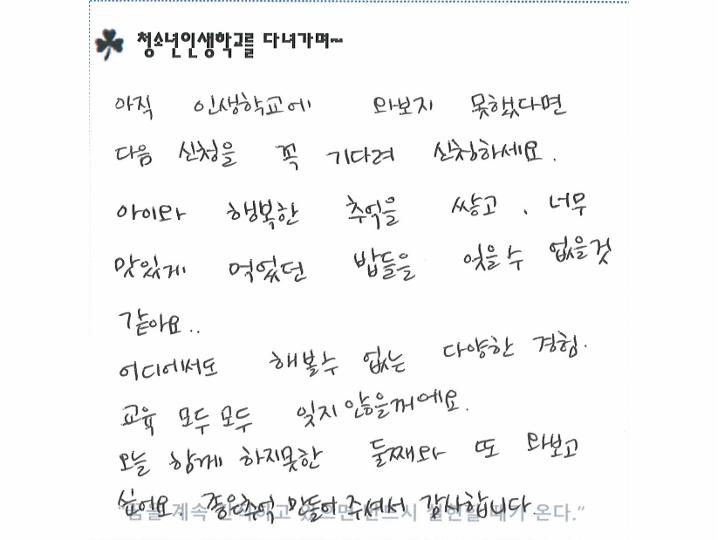 청소년인생학교를 다녀가며~
아직 인생학교에 와보지 못했다면
다음 신청을 꼭 기다려 신청하세요.
아이와 행복한 추억을 쌓고, 너무
맛있게 먹었던 밥들을 잊을수 없을것
같아요..
어디에서도 해볼수 없는 다양한 경험.
교육 모두모두 잊지않을꺼에요.
오늘 함께 하지못한 둘째와 또 와보고
싶어요. 좋은추억 만들어주셔서 감사합니다.
계속 하고 으면 반드시 때가 온다."